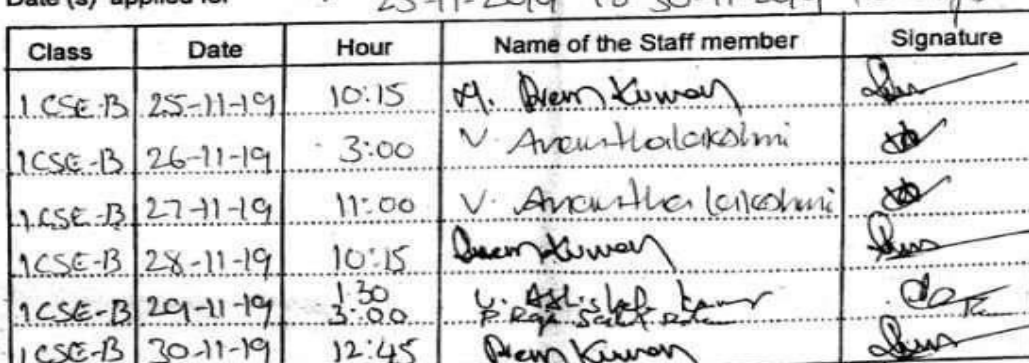 Date (s) applied for : 25-11-2019 To 30-11-2019
Class Date Hour Name of the Staff member Signature
1 CSE-B 25-11-19 10:15 M. Prem Kumar
1CSE-B 26-11-19 3:00 V. Ananthalakshmi
1CSE-B 27-11-19 11:00 V. Anantha lakshmi
1CSE-B 28-11-19 10:15 Prem Kumar
1CSE-B 29-11-19 1:30
3:00
1CSE-B 30-11-19 12:45 Prem Kumar